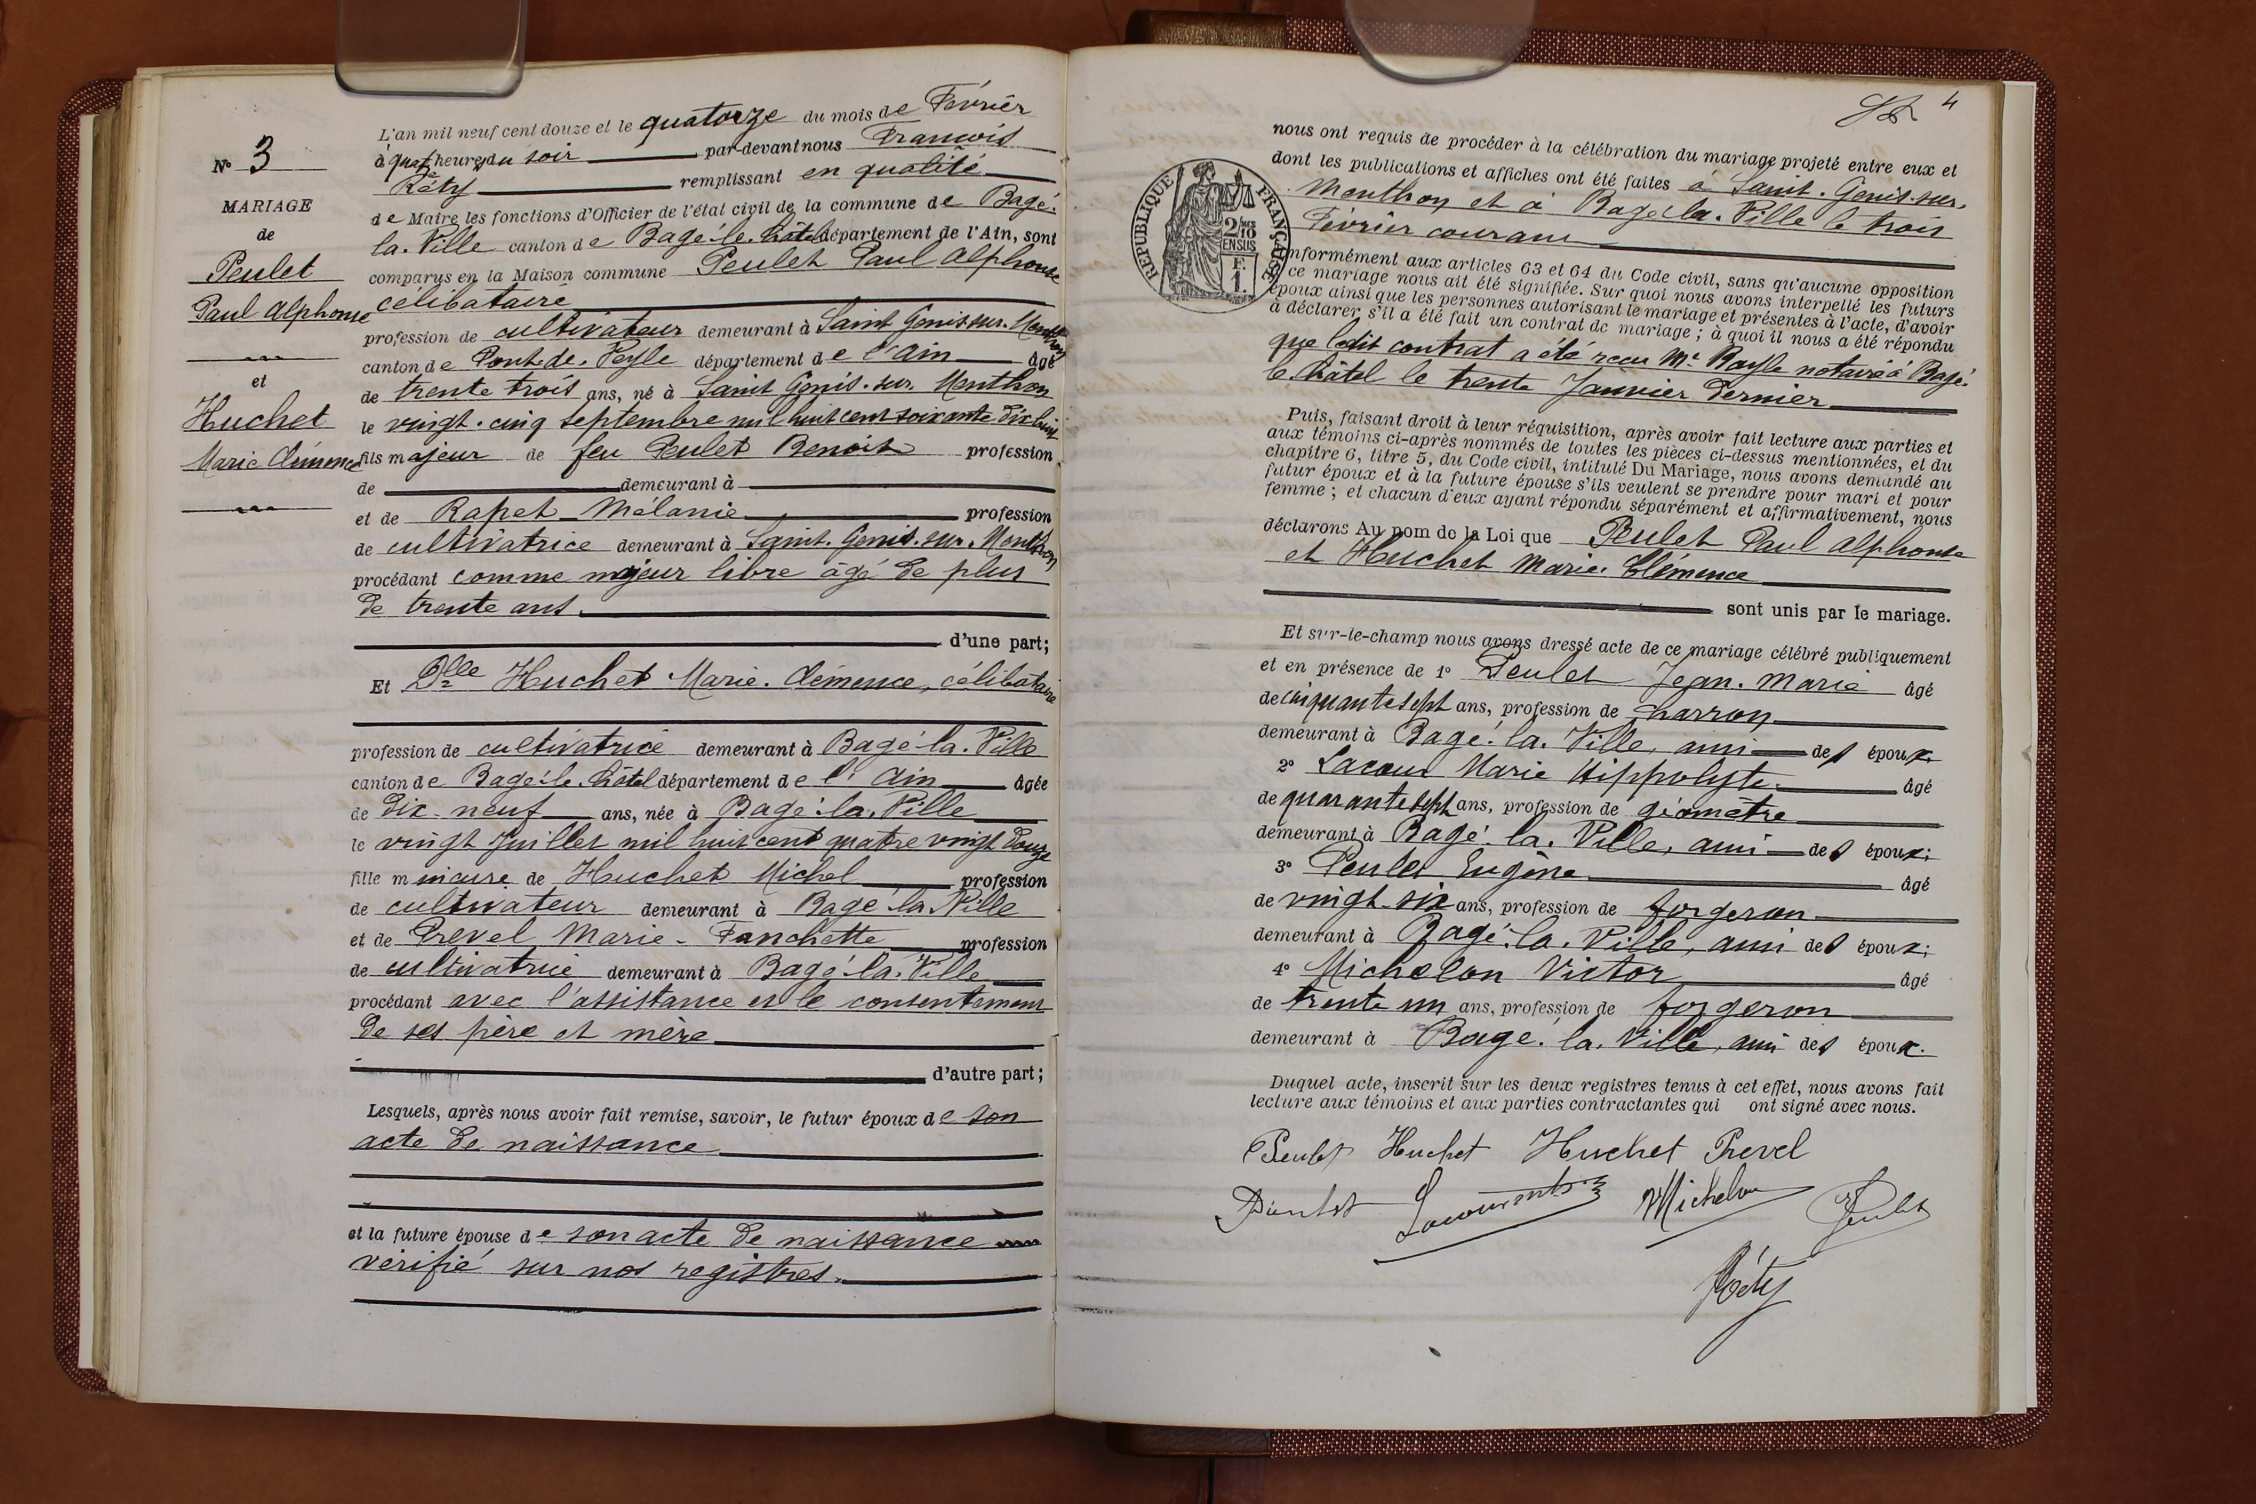 N° 3
MARIAGE
de
Peulet
Paul Alphonse
et
Huchet
Marie Clémence
L'an mil neuf cent douze et le quatorze du mois de Février
à quatre heures du soir par-devant nous François
Réty remplissant en qualité
de Maire les fonctions d'Officier de l'état civil de la commune de Bagé-
la-Ville canton de Bagé-le-Châtel département de l'Ain, sont
comparus en la Maison commune Peulet Paul Alphonse
célibataire
profession de cultivateur demeurant à Saint Genis sur Menthon
canton de Pont-de-Veyle département de l'Ain âgé
de trente trois ans, né à Saint Genis-sur-Menthon
le vingt-cinq septembre mil huit cent soixante dix huit
fils majeur de feu Peulet Benoit profession
de demeurant à
et de Rapet Mélanie profession
de cultivatrice demeurant à Saint-Genis-sur-Menthon
procédant comme majeur libre âgé de plus
de trente ans
d'une part;
Et Dlle Huchet Marie-Clémence, célibataire
profession de cultivatrice demeurant à Bagé-la-Ville
canton de Bagé-le-Châtel département de l'Ain âgée
de dix-neuf ans, née à Bagé-la-Ville
le vingt Juillet mil huit cent quatre vingt douze
fille mineure de Huchet Michel profession
de cultivateur demeurant à Bagé-la-Ville
et de Prevel Marie-Fanchette profession
de cultivatrice demeurant à Bagé-la-Ville
procédant avec l'assistance et le consentement
de ses père et mère
d'autre part;
Lesquels, après nous avoir fait remise, savoir, le futur époux de son
acte de naissance
et la future épouse de son acte de naissance
vérifié sur nos registres.
4
RÉPUBLIQUE FRANÇAISE
2/10
EN SUS
F.
1.
nous ont requis de procéder à la célébration du mariage projeté entre eux et
dont les publications et affiches ont été faites à Saint-Genis-sur-
Menthon et à Bagé-la-Ville le trois
Février courant
nformément aux articles 63 et 64 du Code civil, sans qu'aucune opposition
ce mariage nous ait été signifiée. Sur quoi nous avons interpellé les futurs
époux ainsi que les personnes autorisant le mariage et présentes à l'acte, d'avoir
à déclarer s'il a été fait un contrat de mariage; à quoi il nous a été répondu
que ledit contrat a été reçu Me Bayle notaire à Bagé-
le-Châtel le trente Janvier dernier
Puis, faisant droit à leur réquisition, après avoir fait lecture aux parties et
aux témoins ci-après nommés de toutes les pièces ci-dessus mentionnées, et du
chapitre 6, titre 5, du Code civil, intitulé Du Mariage, nous avons demandé au
futur époux et à la future épouse s'ils veulent se prendre pour mari et pour
femme; et chacun d'eux ayant répondu séparément et affirmativement, nous
déclarons Au nom de la Loi que Peulet Paul Alphonse
et Huchet Marie-Clémence
sont unis par le mariage.
Et sur-le-champ nous avons dressé acte de ce mariage célébré publiquement
et en présence de 1° Peulet Jean-Marie âgé
de cinquante sept ans, profession de charron
demeurant à Bagé-la-Ville, ami des époux.
2° Lacour Marie Hippolyte âgé
de quarante sept ans, profession de géomètre
demeurant à Bagé-la-Ville, ami des époux;
3° Peulet Eugène âgé
de vingt-six ans, profession de forgeron
demeurant à Bagé-la-Ville, ami des époux;
4° Michelon Victor âgé
de trente un ans, profession de forgeron
demeurant à Bagé-la-Ville, ami des époux.
Duquel acte, inscrit sur les deux registres tenus à cet effet, nous avons fait
lecture aux témoins et aux parties contractantes qui ont signé avec nous.
Peulet Huchet Huchet Prevel
Peulet Michelon Peulet
Réty